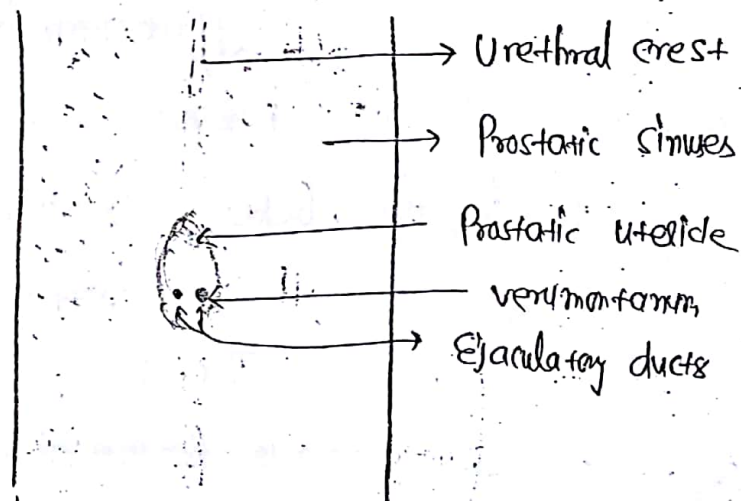 Urethral crest
Prostatic Sinuses
Prostatic utelide
verumontanum
Ejaculatory ducts